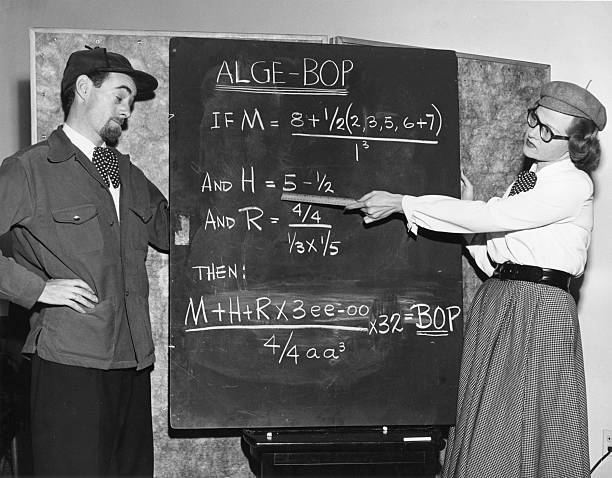 ALGE-BOP
IF M = 8+1/2(2,3,5,6+7)
1³
AND H = 5-1/2
AND R = 4/4
1/3 x 1/5
THEN:
M+H+R x 3ee-oo x 32 = BOP
4/4 aa³